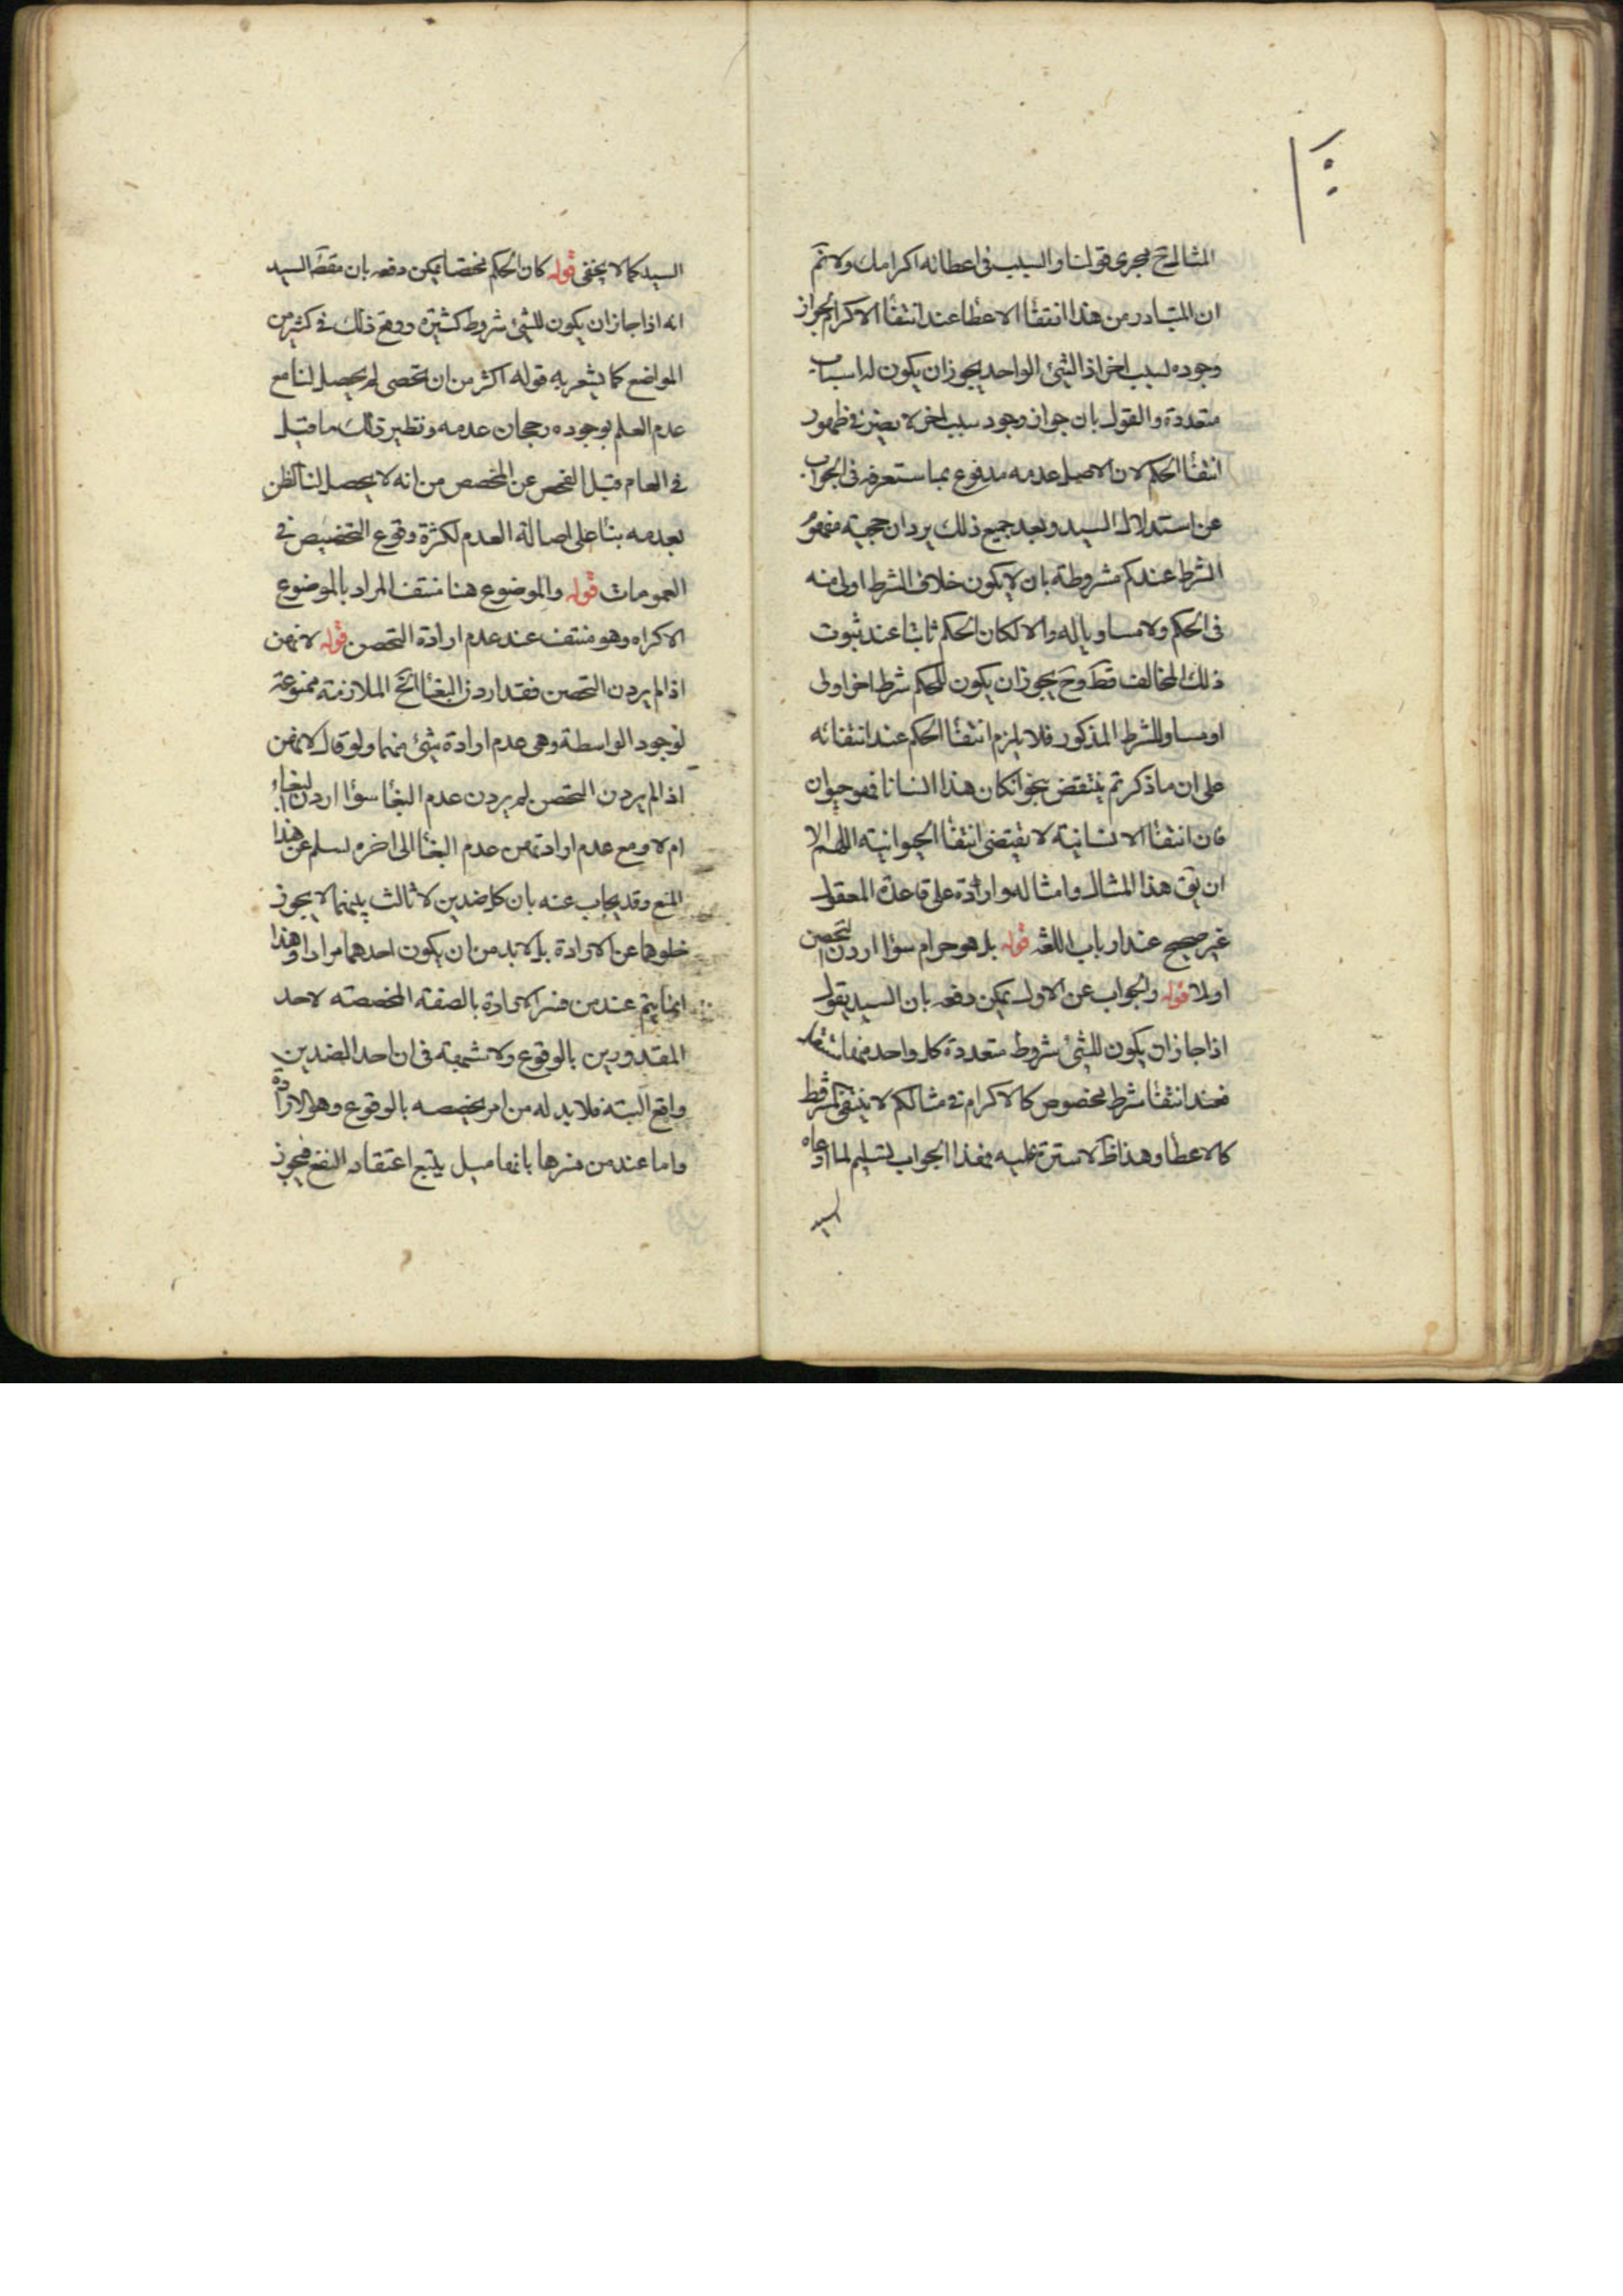 المثال ح مجرى قولنا والسبب فى اعطائه اكرامك ولا نم
ان المتبادر من هذا انتفأ الاعطا عند انتفأ الاكرام لجواز
وجوده لسبب اخر اذ الشئ الواحد يجوز ان يكون له اسباب
متعددة والقول بان جواز وجود سبب اخر لا يضر فى ظهور
انتفأ الحكم لان الاصل عدمه مدفوع بما ستعرفه فى الجواب
عن استدلال السيد وبعد جميع ذلك يرد ان حجية مفهوم
الشرط عندكم مشروطة بان لا يكون خلاف الشرط اولى منه
فى الحكم ولا مساويا له والا لكان الحكم ثابتا عند ثبوت
ذلك المخالف قط وح يجوز ان يكون للحكم شرط اخر اولى
او مساو للشرط المذكور فلا يلزم انتفأ الحكم عند انتفائه
على ان ما ذكرتم ينتقض بنحو ان كان هذا انسانا فهو حيوان
فان انتفأ الانسانية لا يقتضى انتفأ الحيوانية اللهم الا
ان يق هذا المثال وامثاله واردة على قاعدة المعقول
غير صحيح عند ارباب اللغة قوله بل هو حرام سوأ اردن التحصن
اولا قوله والجواب عن الاول يمكن دفعه بان السيد يقول
اذا جاز ان يكون للشئ شروط متعددة كل واحد منها مستقل
فعند انتفأ شرط مخصوص كالاكرام فى مثالكم لا ينتفى المشروط
كالاعطأ وهذا ظ لا سترة عليه فهذا الجواب تسليم لما ادعاه
السيد
السيد كما لا يخفى قوله كان الحكم مختصا يمكن دفعه بان مقصد السيد
انه اذا جاز ان يكون للشئ شروط كثيرة ووقع ذلك فى كثير من
المواضع كما يشعر به قوله اكثر من ان تحصى لم يحصل لنا مع
عدم العلم بوجوده رجحان عدمه ونظير ذلك ما قيل
فى العام قبل الفحص عن المخصص من انه لا يحصل لنا الظن
بعدمه بنأ على اصالة العدم لكثرة وقوع التخصيص فى
العمومات قوله والموضوع هنا منتف المراد بالموضوع
الاكراه وهو منتف عند عدم ارادة التحصن قوله لانهن
اذا لم يردن التحصن فقد اردن البغأ الخ الملازمة ممنوعة
لوجود الواسطة وهى عدم ارادة شئ منهما ولو قال لانهن
اذا لم يردن التحصن لم يردن عدم البغأ سوأ اردن البغاء
ام لا ومع عدم ارادتهن عدم البغأ الى اخره لسلم عن هذا
المنع وقد يجاب عنه بان كل ضدين لا ثالث بينهما لا يجوز
خلوهما عن الارادة بل لا بد من ان يكون احدهما مرادا وهذا
انما يتم عند من فسر الارادة بالصفة المخصصة لاحد
المقدورين بالوقوع ولا شبهة فى ان احد الضدين
واقع البتة فلا بد له من امر يخصصه بالوقوع وهو الارادة
واما عند من فسرها بانها ميل يتبع اعتقاد النفع فيجوز